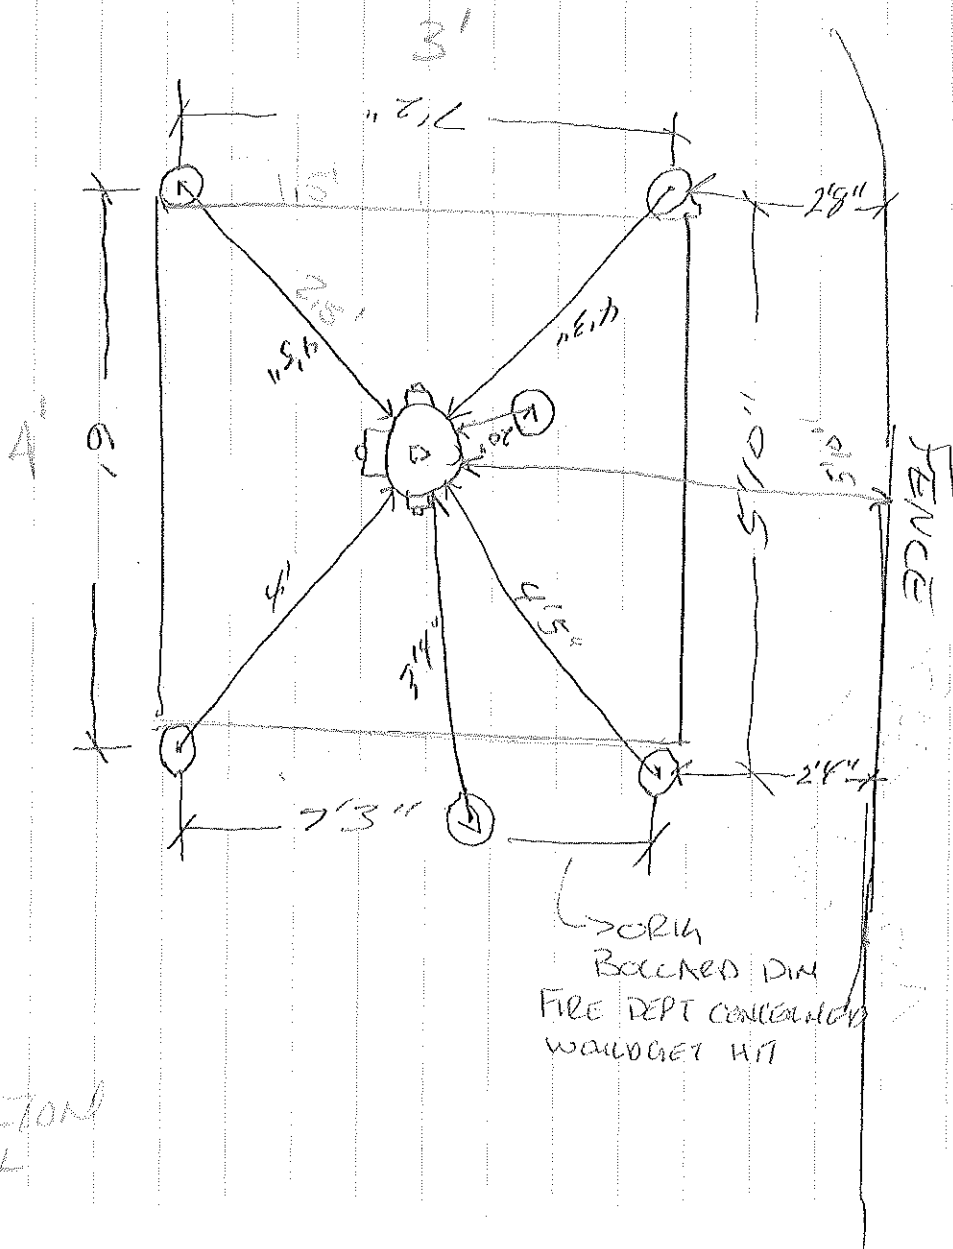 3'
7'2"
2'8"
2.5'
4'5"
4'3"
4'
6'
20"
5'10"
FENCE
4'
3'4"
4'5"
7'3"
2'4"
ORIG
BOLLARD DIM
FIRE DEPT CONCERNED
WOULD GET HIT